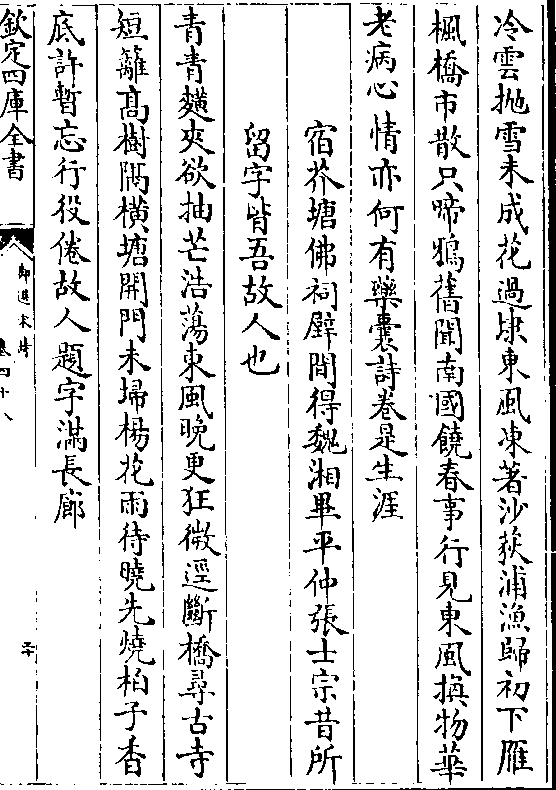 冷雲抛雪未成花過埭東風凍著沙荻浦漁歸初下雁
楓橋市散只啼鴉舊聞南國饒春事行見東風損物華
老病心情亦何有藥囊詩卷是生涯
宿芥塘佛祠壁間得魏湘畢平仲張士宗昔所
留字皆吾故人也
青青麰夾欲抽芒浩蕩東風晚更狂微逕斷橋尋古寺
短籬高樹隔橫塘開門未掃楊花雨待曉先燒柏子香
底許暫忘行役倦故人題字滿長廊
欽定四庫全書
御選宋詩
卷四十八